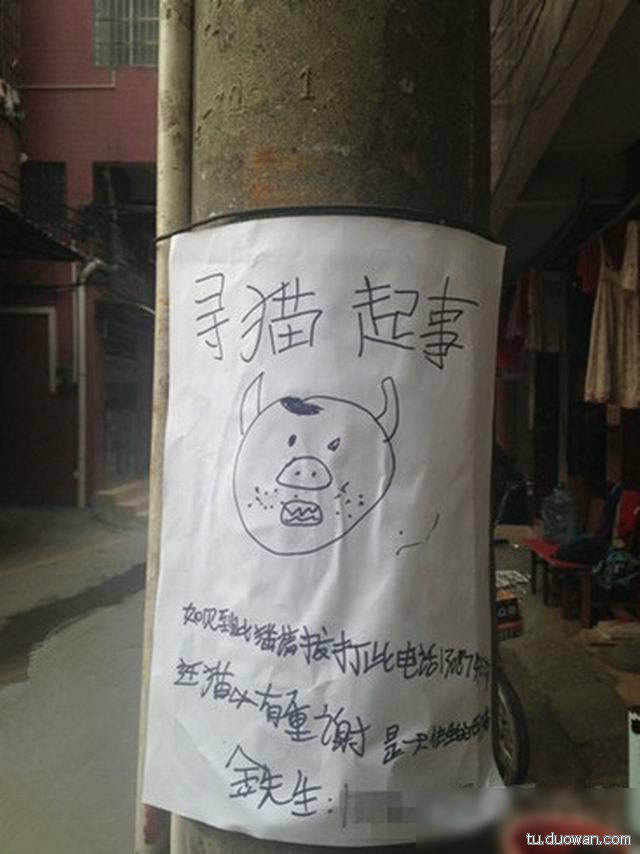 寻猫 起事
如见到此猫请拨打此电话13087
还猫必有重谢 是一只
金先生:
tu.duowan.com